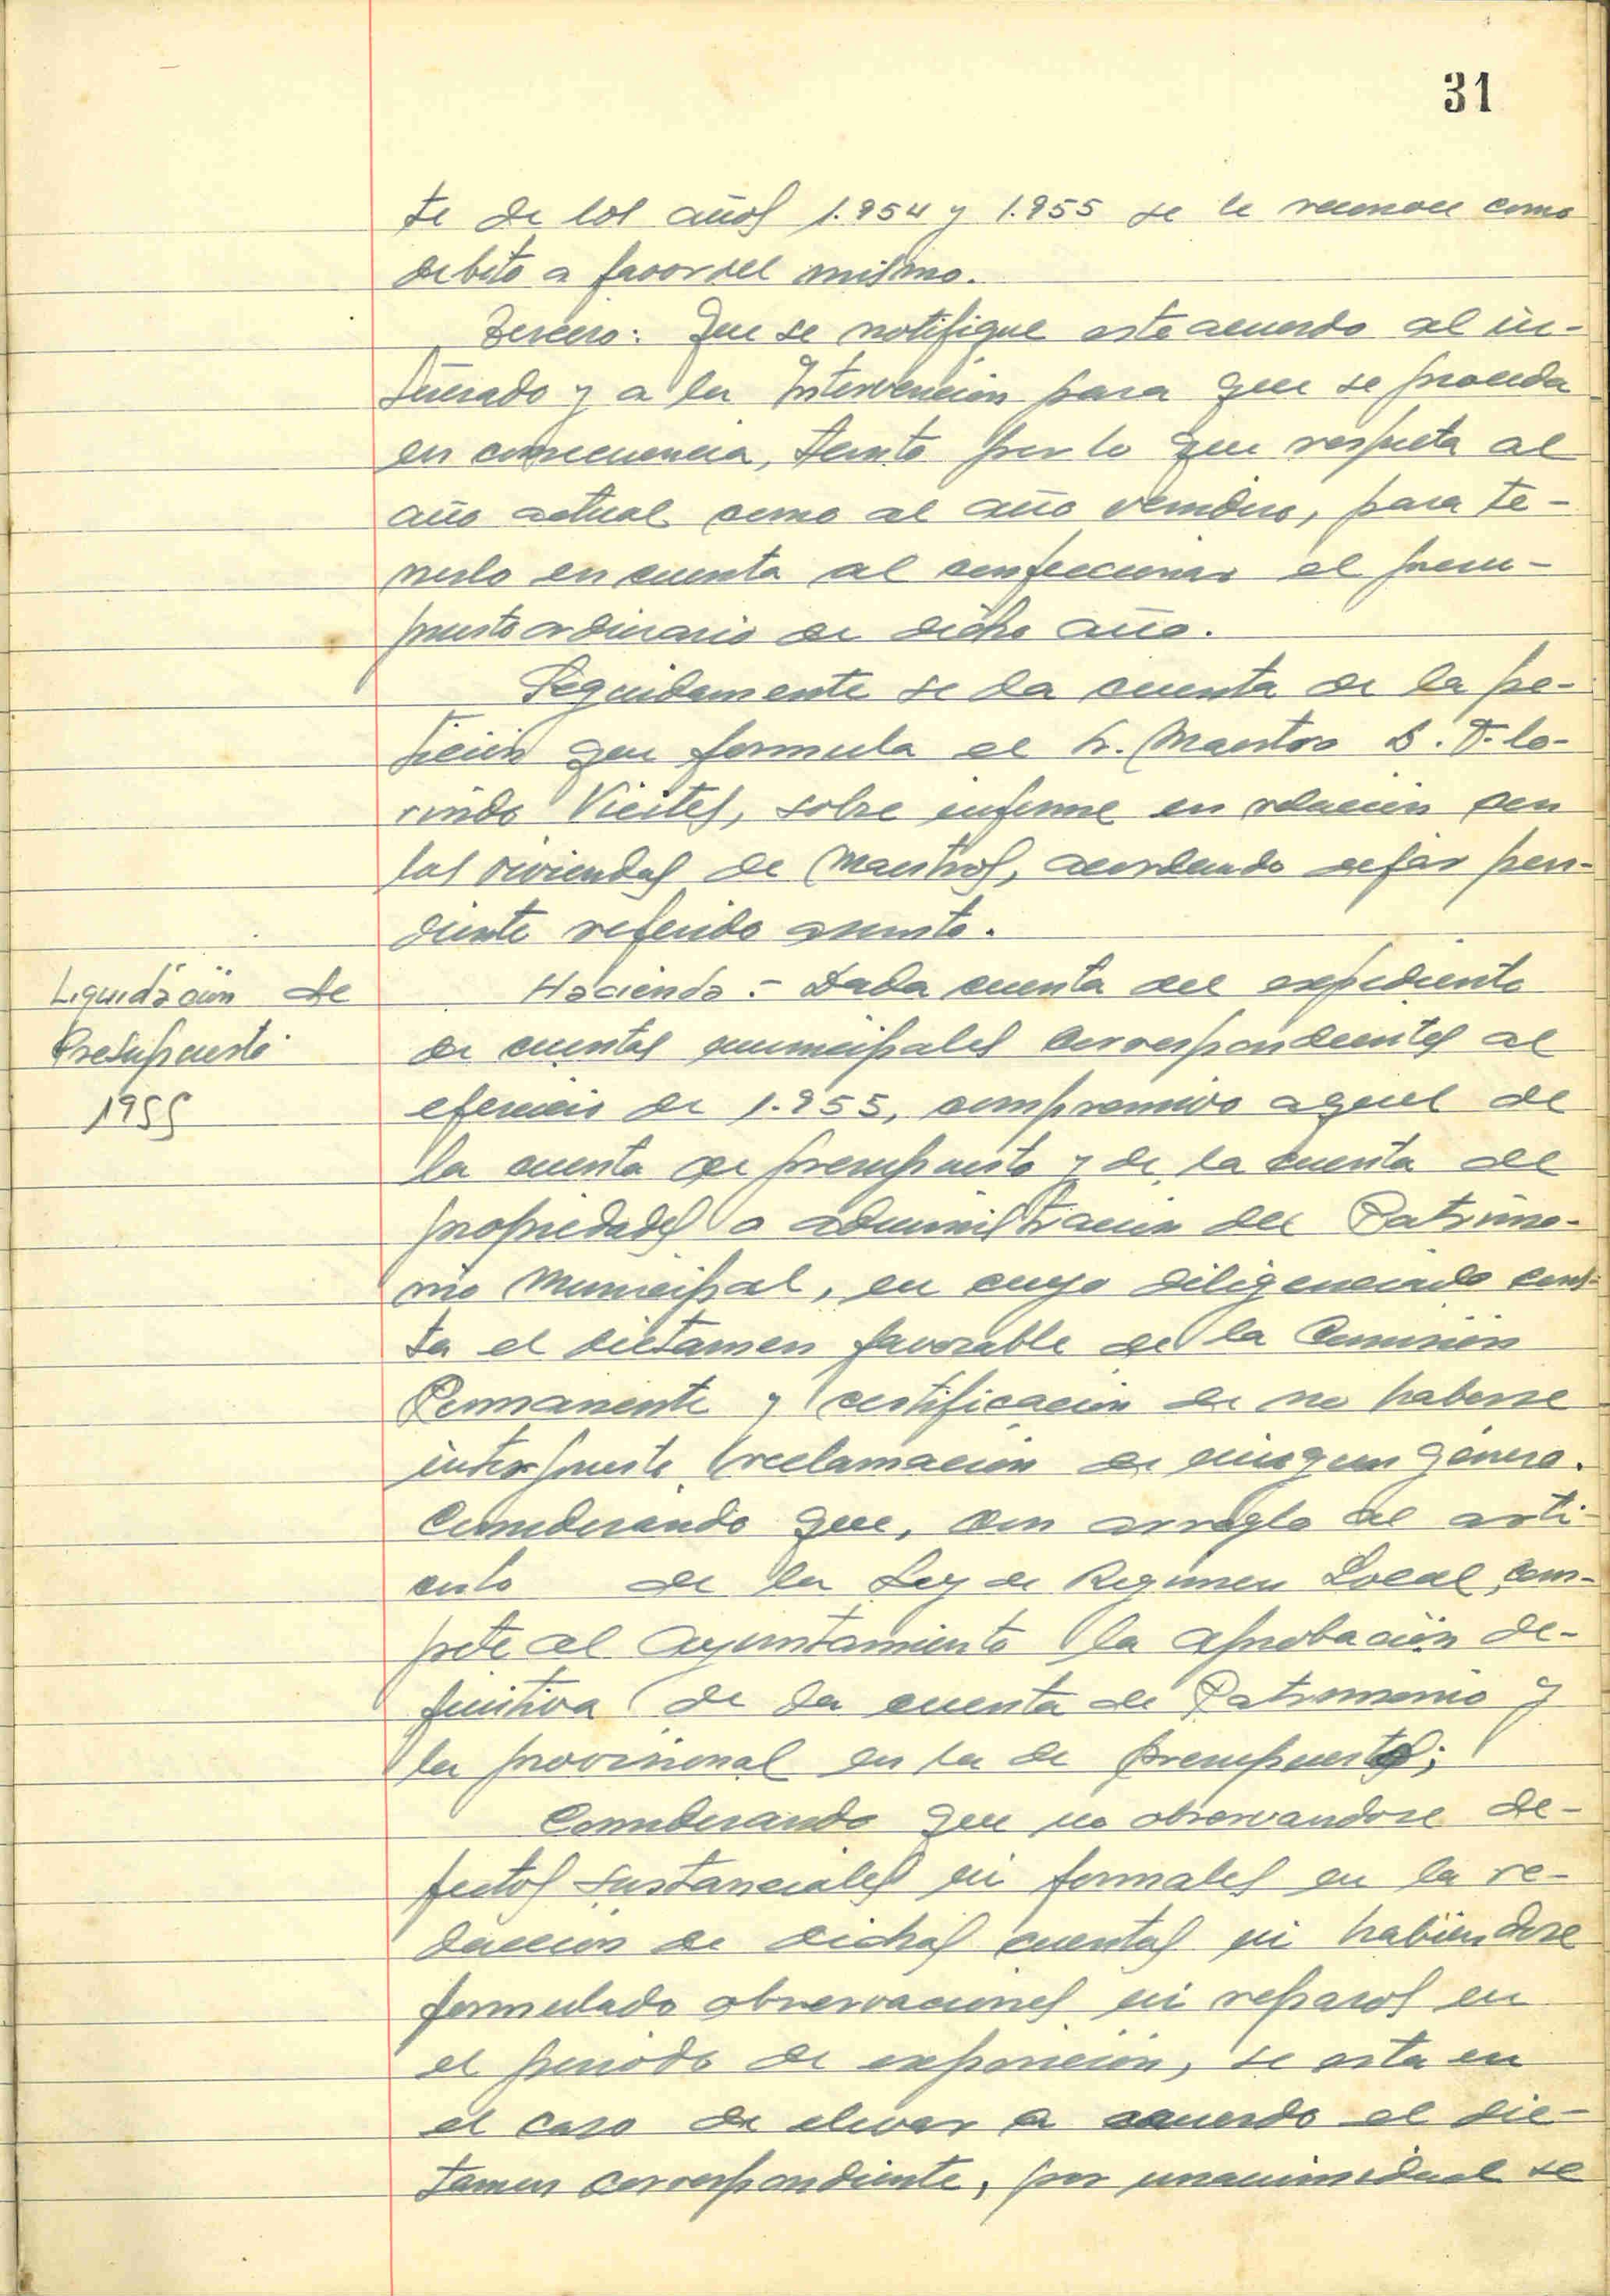 31
te de los años 1.954 y 1.955 se le reconoce como
debito a favor del mismo.
Tercero: Que se notifique este acuerdo al in-
teresado y a la Intervencion para que se proceda
en consecuencia, tanto por lo que respecta al
año actual como al año venidero, para te-
nerlo en cuenta al confeccionar el presu-
puesto ordinario de dicho año.
Seguidamente se da cuenta de la pe-
ticion que formula el Sr. Maestro D. Flo-
rindo Vieites, sobre informe en relacion con
las viviendas de Maestros, acordando dejar pen-
diente referido asunto.
Liquidación de
Presupuesto
1955
Hacienda.- Dada cuenta del expediente
de cuentas municipales correspondientes al
ejercicio de 1.955, comprensivo aquel de
la cuenta de presupuesto y de la cuenta de
propiedades o administracion del Patrimo-
nio Municipal, en cuyo diligenciado cons-
ta el dictamen favorable de la Comisión
Permanente y certificacion de no haberse
interpuesto reclamacion de ningun género.
Considerando que, con arreglo al arti-
culo de la Ley de Regimen Local, com-
pete al Ayuntamiento la aprobación de-
finitiva de la cuenta de Patrimonio y
la provisional en la de presupuestos;
Considerando que no observandose de-
fectos sustanciales ni formales en la re-
daccion de dichas cuentas ni habiendose
formulado observaciones ni reparos en
el periodo de exposicion, se esta en
el caso de elevar a acuerdo el dic-
tamen correspondiente, por unanimidad se